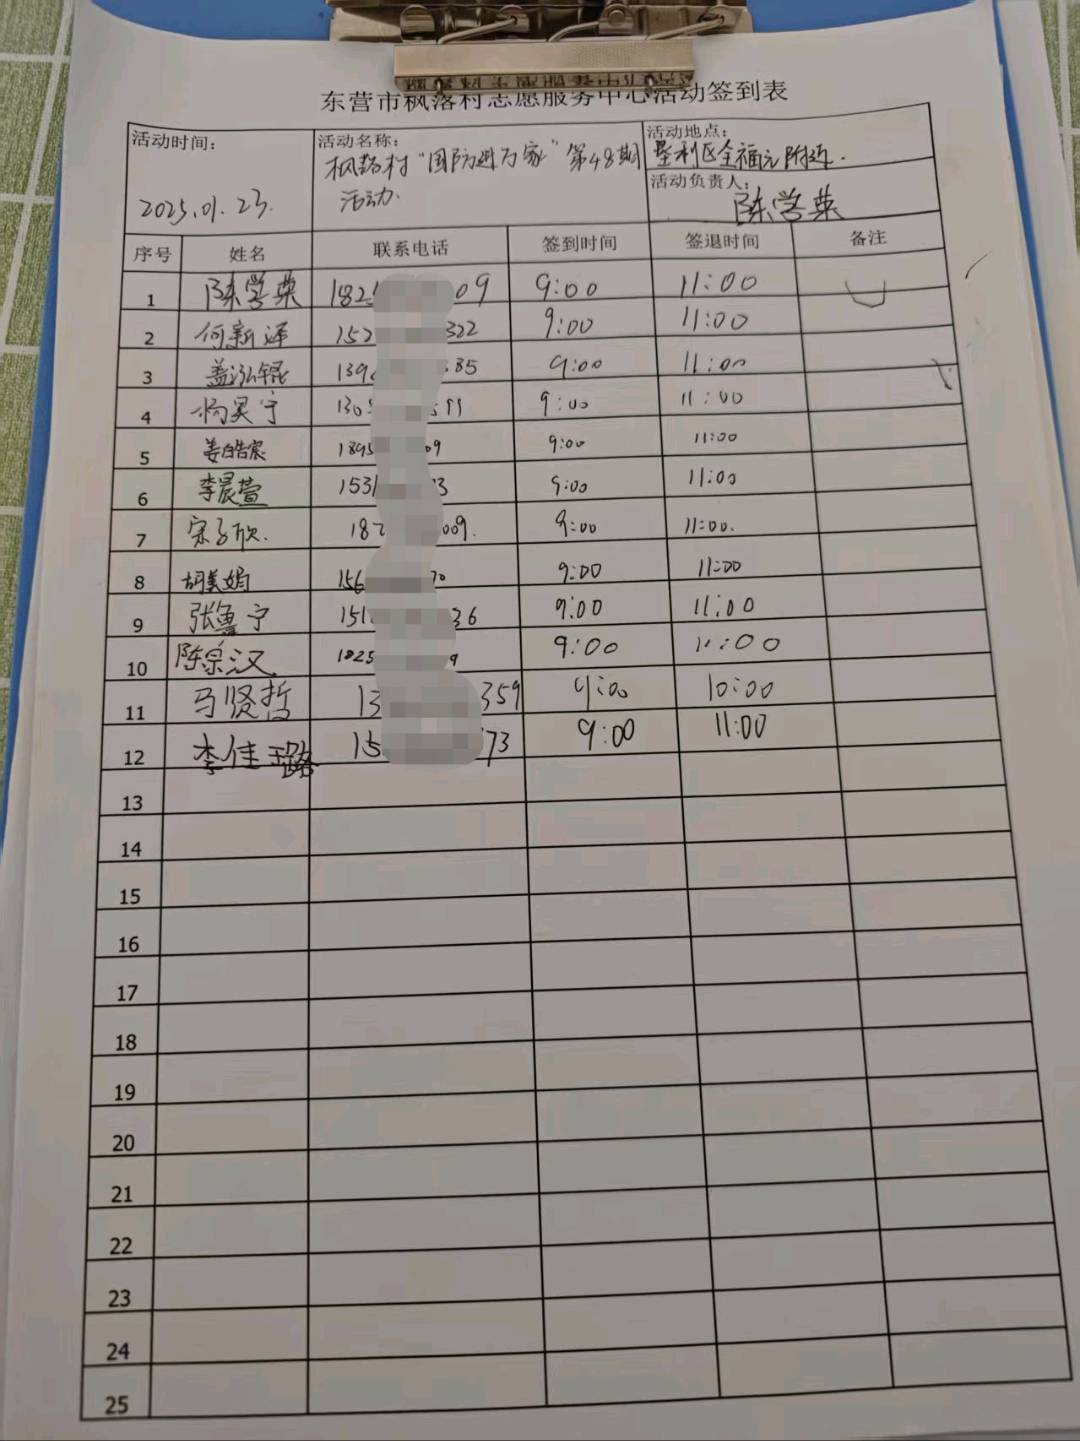 东营市枫落村志愿服务中心活动签到表
活动时间: 2025.01.23.
活动名称: 枫落村“国防进万家”第48期
活动.
活动地点: 垦利区全福元附近.
活动负责人: 陈学荣
序号 姓名 联系电话 签到时间 签退时间 备注
1 陈学荣 182 09 9:00 11:00
2 何新泽 152 322 9:00 11:00
3 盖泓锟 139 385 9:00 11:00
4 杨昊宁 130 599 9:00 11:00
5 姜皓宸 1895 09 9:00 11:00
6 李晨萱 1531 3 9:00 11:00
7 宋子欣. 182 009. 9:00 11:00.
8 胡美娟 156 70 9:00 11:00
9 张鲁宁 151 36 9:00 11:00
10 陈宗汉 1825 9 9:00 11:00
11 马贤哲 13 359 9:00 10:00
12 李佳璐 15 73 9:00 11:00
13
14
15
16
17
18
19
20
21
22
23
24
25